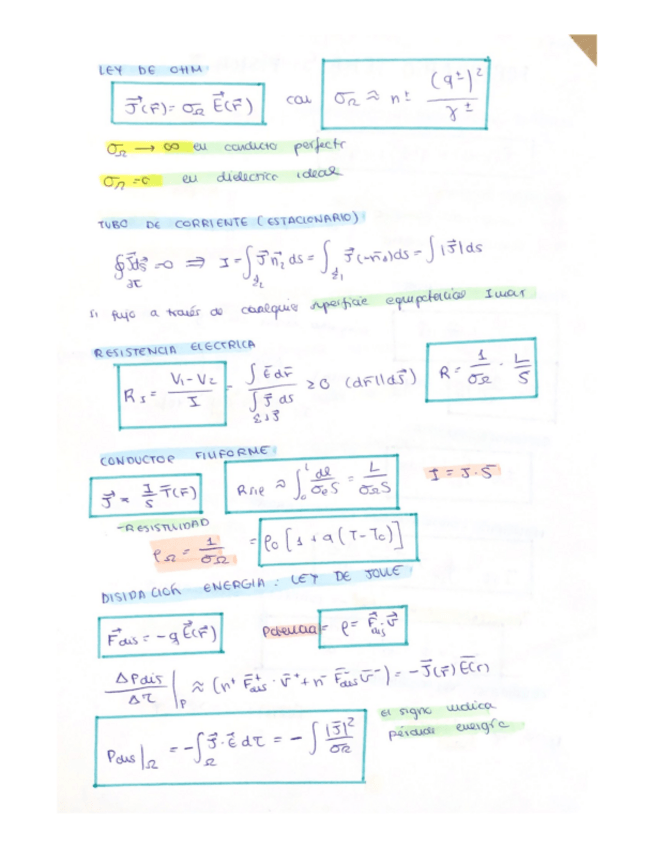 LEY DE OHM:
J⃗(r̄) = σ_Ω E⃗(r̄) con σ_Ω ≈ n± (q±)² / γ±
σ_Ω → ∞ en conducto perfecto
σ_Ω = 0 en dielectrico ideal
TUBO DE CORRIENTE (ESTACIONARIO)
∮ J⃗ds⃗ = 0 ⇒ I = ∫ J⃗ n⃗₂ ds = ∫ J⃗ (-n⃗₁) ds = ∫ |J⃗| ds
si flujo a través de cualquier superficie equipotencial
RESISTENCIA ELECTRICA
= (V₁ - V₂) / I = ∫ E⃗ dr⃗ / ∫ J⃗ ds ≥ 0 (dr⃗ || ds⃗) R = 1/σ_Ω · L/S
CONDUCTOR FILIFORME:
J⃗ ≈ I/S T(r̄) ≈ ∫₀ᴸ dl / σS = L / σ_Ω S I = J·S
-RESISTIVIDAD
ρ_Ω = 1/σ_Ω = ρ₀ [1 + a (T - T₀)]
DISIPACIÓN ENERGIA: LEY DE JOULE
F⃗dis = -q E⃗(r⃗) Potencia = p = F⃗dis · v⃗
ΔPdis / Δτ |p ≈ (n⁺ F̄⁺dis · v̄⁺ + n⁻ F̄⁻dis v̄⁻) = -J⃗(r̄) E⃗(r)
Pdis |_Ω = -∫_Ω J⃗ · E⃗ dτ = - ∫ |J⃗|² / σ_Ω
El signo indica
pérdida energía